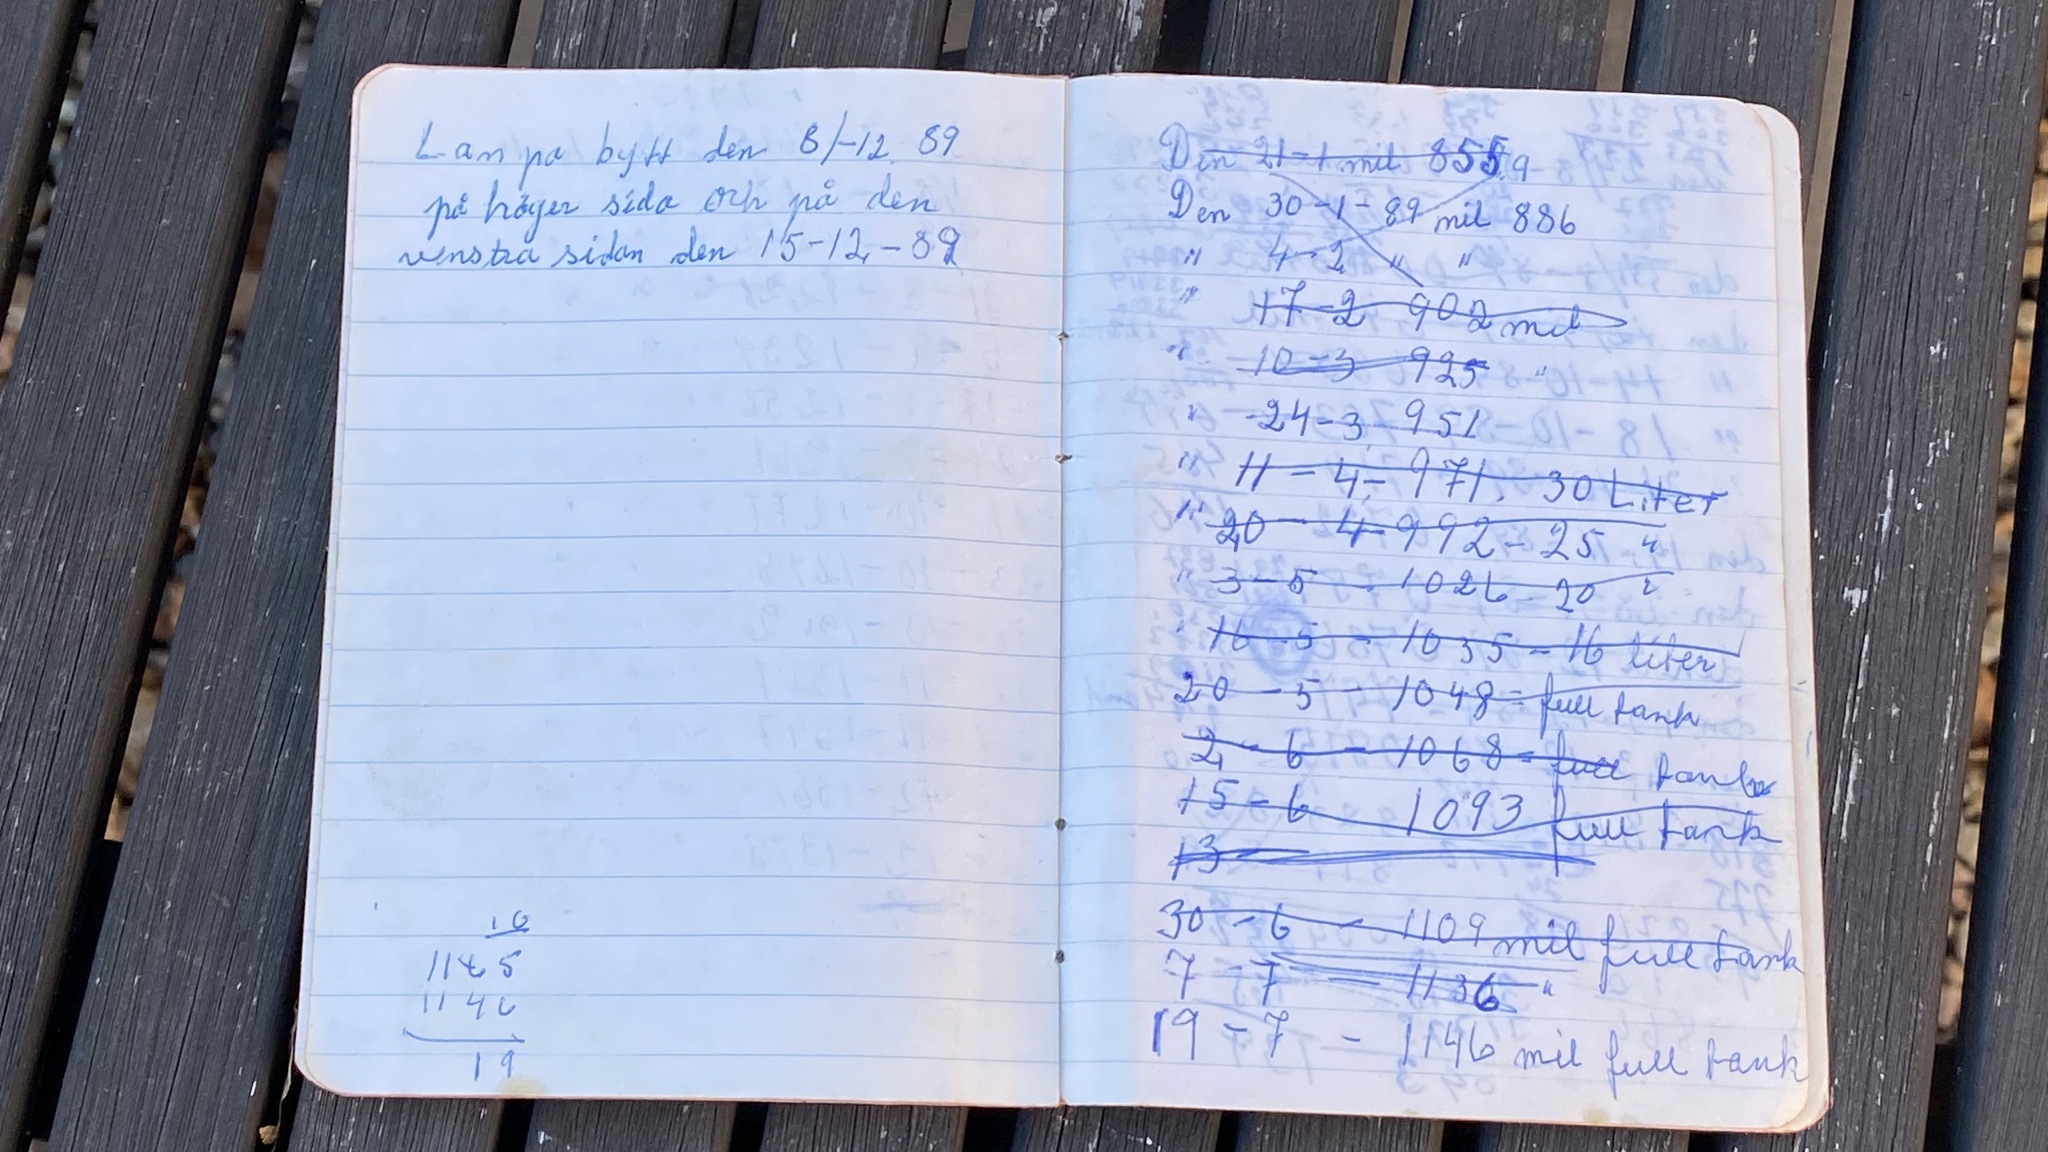 Lampa bytt den 8/-12 89
på höger sida och på den
venstra sidan den 15-12-89
10
1165
1146
19
Den 21-1 mil 855,9
Den 30-1-89 mil 886
" 4-2 " "
" 17-2 902 mil
" 10-3 925 "
" 24-3-951
" 11-4-971. 30 Liter
" 20-4-992-25 "
" 3-5-1026-20 "
" 16-5-1035-16 liter
20-5-1048-full tank
2-6-1068-full tank
15-6 1093 full tank
13
30-6-1109 mil full tank
7-7-1136 "
19-7-1146 mil full tank